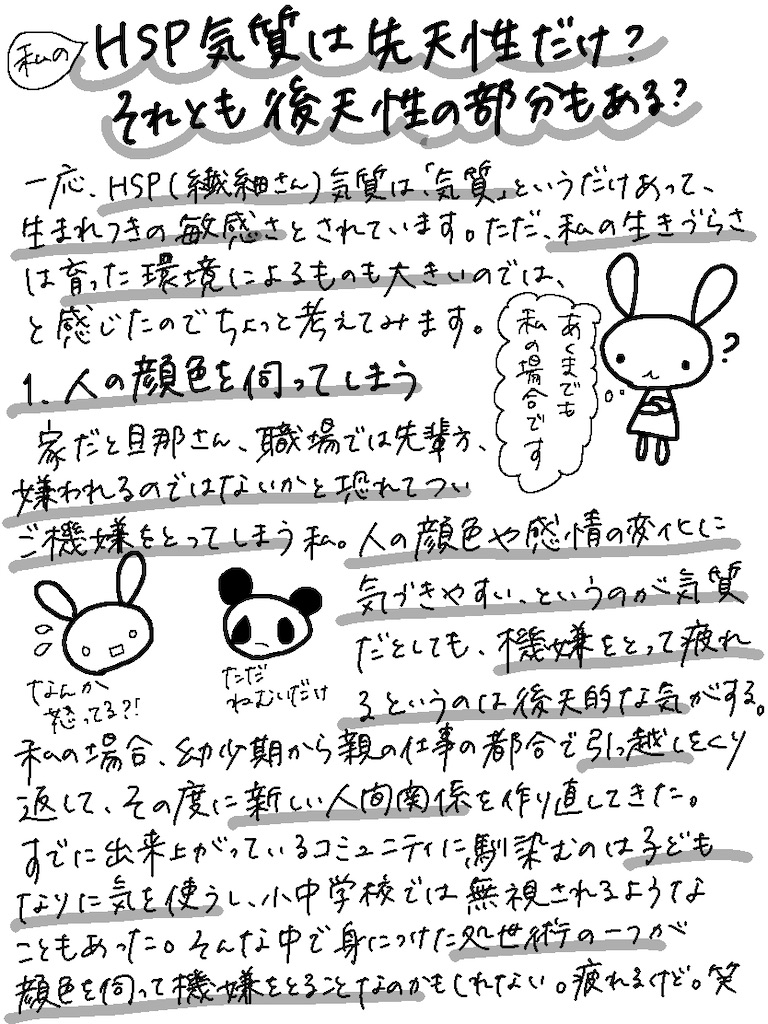 私の
HSP気質は先天性だけ?
それとも後天性の部分もある?
一応、HSP(繊細さん)気質は「気質」というだけあって、
生まれつきの敏感さとされています。ただ、私の生きづらさ
は育った環境によるものも大きいのでは、
と感じたのでちょっと考えてみます。
あくまでも
私の場合です
?
1. 人の顔色を伺ってしまう
家だと旦那さん、職場では先輩方、
嫌われるのではないかと恐れてつい
ご機嫌をとってしまう私。人の顔色や感情の変化に
気づきやすい、というのが気質
だとしても、機嫌をとって疲れ
るというのは後天的な気がする。
なんか
怒ってる?!
ただ
ねむいだけ
私の場合、幼少期から親の仕事の都合で引っ越しをくり
返して、その度に新しい人間関係を作り直してきた。
すでに出来上がっているコミュニティに馴染むのは子ども
なりに気を使うし、小中学校では無視されるような
こともあった。そんな中で身につけた処世術の一つが
顔色を伺って機嫌をとることなのかもしれない。疲れるけど。笑